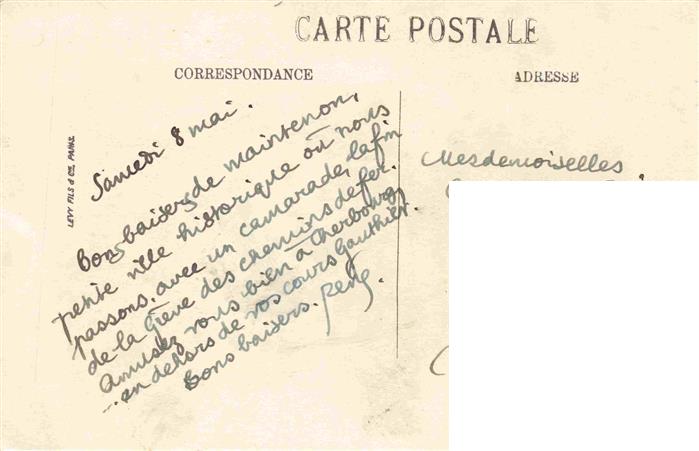 CARTE POSTALE
CORRESPONDANCE
ADRESSE
LEVY FILS & Cie, PARIS.
Samedi 8 mai.
Bons baisers de maintenon,
petite ville historique où nous
passons, avec un camarade, la fin
de la Grève des chemins de fer.
Amusez vous bien à Cherbourg,
en dehors de vos cours Gauthier.
Bons baisers.
Mesdemoiselles